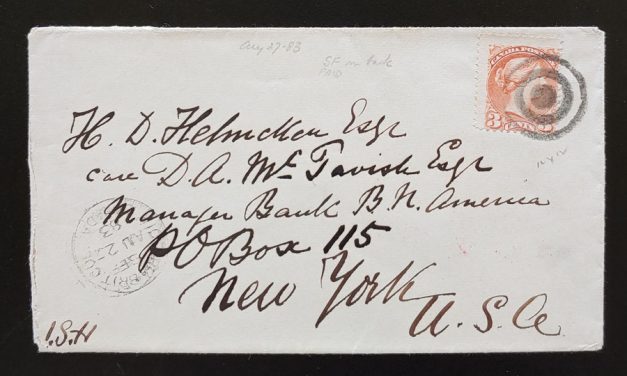 Aug 27-83
SF on back
PAID
CANADA POSTAGE
3 CENTS 3
H. D. Helmcken Esqr
care D. A. McTavish Esqr
Manager Bank B. N. America
PO Box 115
New York
U. S. A
I.S.H
BRIT. COL